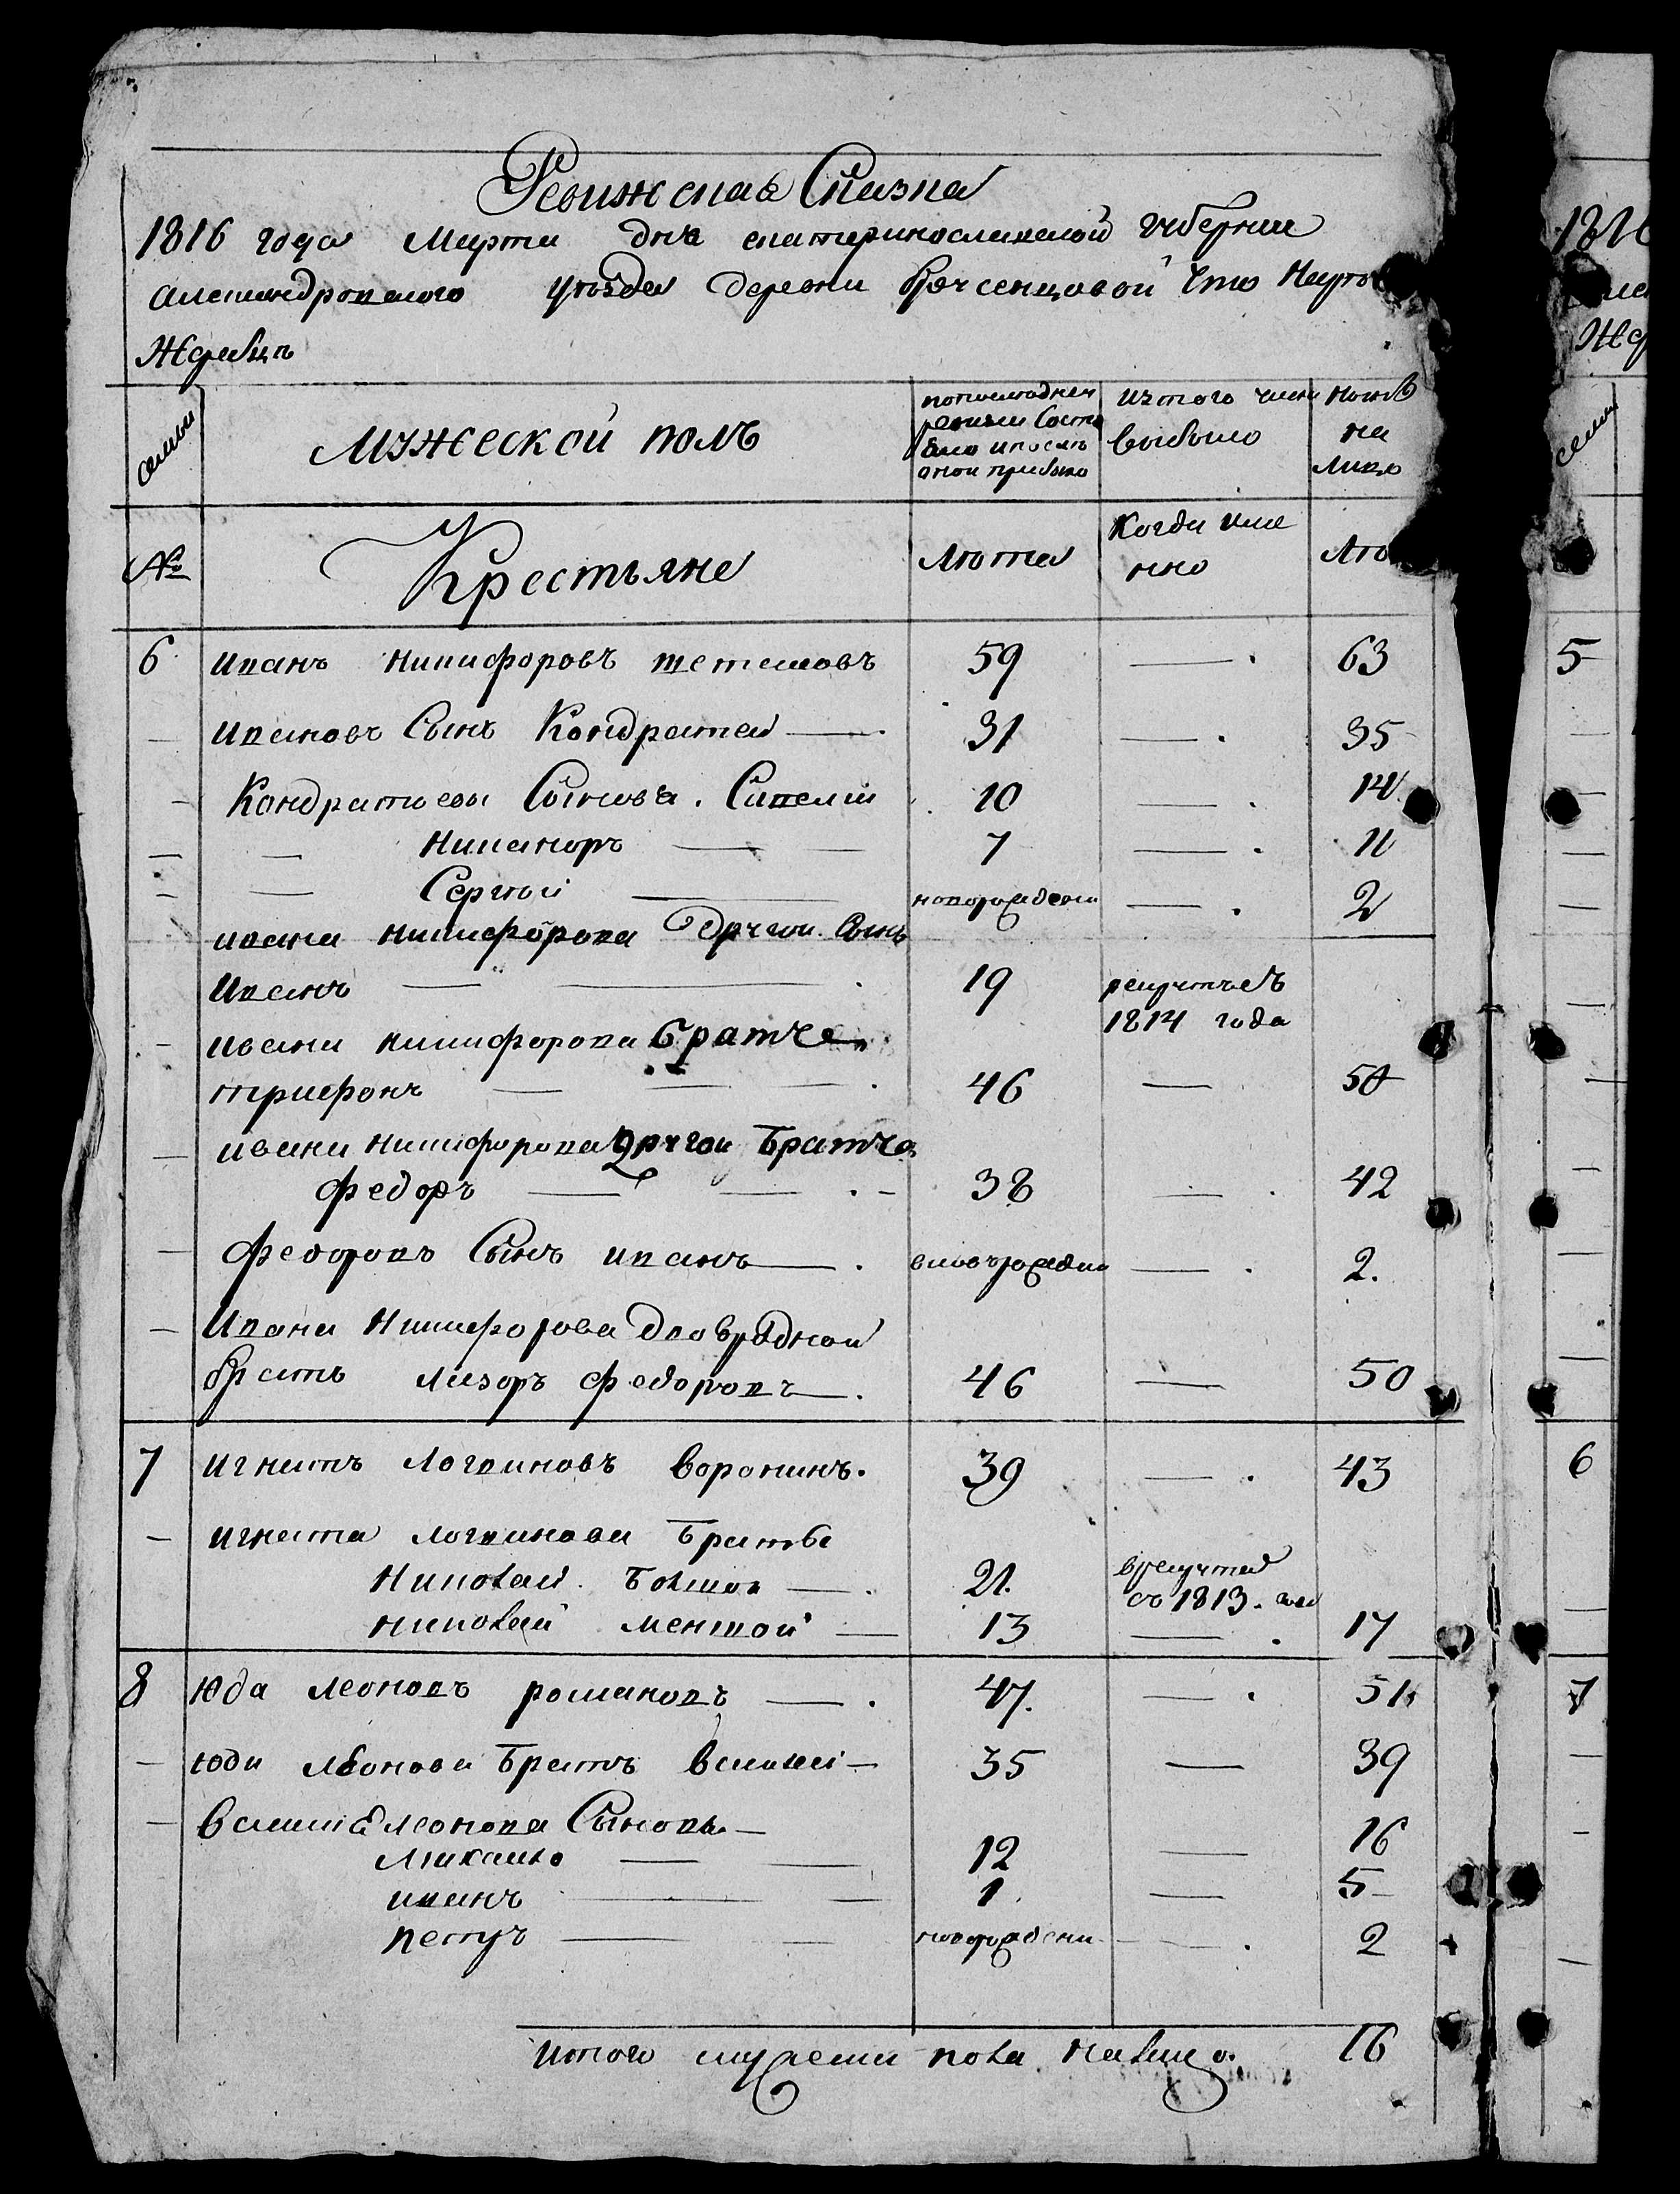 Ревижская Сказка
1816 года Марта дня екатеринославской губернии
александровского уѣзда деревни Что
Жеребцъ
семьи
Мужеской полъ
попоследней
ревизи состо
яло ипосле
оной прибыло
изтого числа
выбыло
ныне
на
лицо
№
Крестьяне
Лѣта
Когда име
нно
Лѣ
6 иванъ никифоровъ 59 — 63
ивановъ Сынъ Кондратей — 31 — 35
Кондратьевы Сыновья. Савелий 10 — 14
Никаноръ — 7 — 11
Сергѣй — новорожденъ — 2
ивана никифорова другой Сынъ
Иванъ — 19 рекрутъ въ
1814 года
ивана никифорова братья
трифонъ — 46 — 50
ивана никифорова другой братъ
федоръ — 38 — 42
федоровъ Сынъ иванъ — вновьрожденъ — 2.
Ивана Никифорова двоюрадной
братъ Лазоръ федоровъ — 46 — 50
7 игнатъ логвиновъ воронинъ. 39 — 43
игната логвинова братья
Николай большой — 21. врекруты
съ 1813. года
николай меншой — 13 — 17
8 Юда леоновъ романовъ — 47. — 51.
юды леонова братъ василей — 35 — 39
василия леонова Сыновья —
Михайло — 12 — 16
иванъ — 1 — 5
петръ — новорожденъ — 2
итого мужеска пола налицо. 16
181
Же
семьи
5
6
7